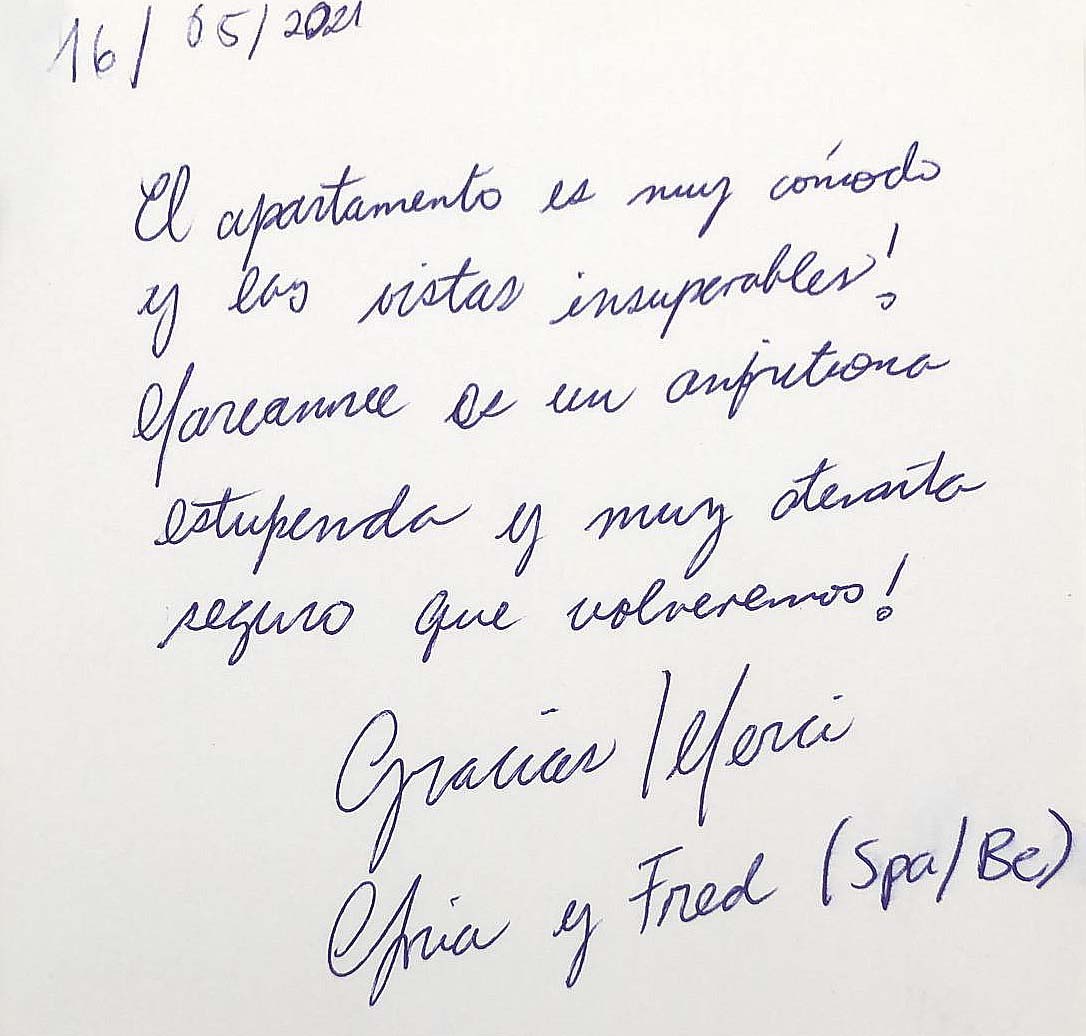 16/05/2021
El apartamento es muy cómodo
y las vistas insuperables!
es un anfitriona
estupenda y muy atenta
seguro que volveremos!
Gracias / Merci
y Fred (Spa/Be)